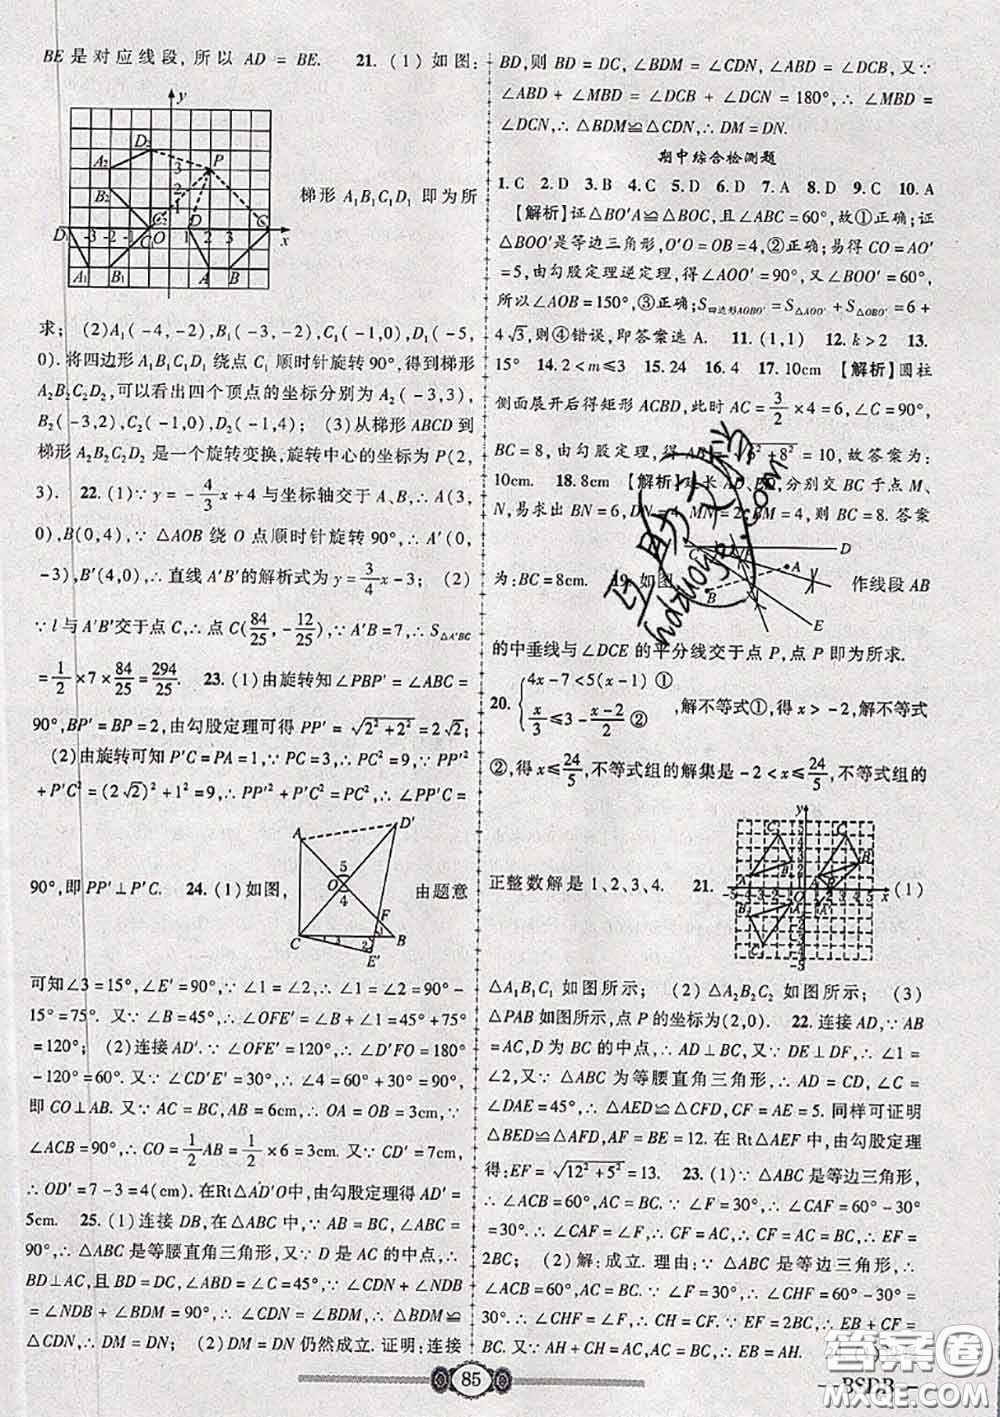 BE 是对应线段, 所以 AD = BE. 21. (1) 如图:
y
D₂ P
A₂ 3
B₂ 2
C₂ 1 梯形 A₁B₁C₁D₁ 即为所
D₁ -3 -2 -1 C₁ O 1 D 2 3 C x
A₁ B₁ A B
求; (2)A₁(-4,-2),B₁(-3,-2),C₁(-1,0),D₁(-5,
0). 将四边形 A₁B₁C₁D₁ 绕点 C₁ 顺时针旋转90°,得到梯形
A₂B₂C₂D₂,可以看出四个顶点的坐标分别为 A₂(-3,3),
B₂(-3,2),C₂(-1,0),D₂(-1,4); (3)从梯形 ABCD 到
梯形 A₂B₂C₂D₂ 是一个旋转变换,旋转中心的坐标为 P(2,
3). 22. (1)∵y = -4/3x+4 与坐标轴交于 A、B,∴A(3,
0),B(0,4),∵△AOB 绕 O 点顺时针旋转 90°,∴A′(0,
-3),B′(4,0),∴直线 A′B′的解析式为 y=3/4x-3; (2)
∵l 与 A′B′交于点 C,∴点 C(84/25,-12/25),∵A′B=7,∴S△A′BC
=1/2×7×84/25=294/25 23. (1)由旋转知∠PBP′=∠ABC=
90°,BP′=BP=2,由勾股定理可得 PP′=√2²+2²=2√2;
(2)由旋转可知 P′C=PA=1,∵PC=3,∴PC²=9,∵PP′²
+P′C²=(2√2)²+1²=9,∴PP′²+P′C²=PC²,∴∠PP′C=
A D′
5
O
4
90°,即 PP′⊥P′C. 24. (1)如图, 由题意
F
C 3 1 2 B
E′
可知∠3=15°,∠E′=90°,∵∠1=∠2,∴∠1=∠2=90°-
15°=75°. 又∵∠B=45°,∴∠OFE′=∠B+∠1=45°+75°
=120°; (2)连接 AD′. ∵∠OFE′=120°,∴∠D′FO=180°
-120°=60°,又∵∠CD′E′=30°,∴∠4=60°+30°=90°,
即 CO⊥AB. 又∵AC=BC,AB=6cm,∴OA=OB=3cm,∵
∠ACB=90°,∴CO=1/2AB=1/2×6=3(cm). 又∵CD′=7cm,
∴OD′=7-3=4(cm). 在Rt△AD′O中,由勾股定理得 AD′=
5cm. 25. (1)连接 DB,在△ABC 中,∵AB=BC,∠ABC=
90°,∴△ABC 是等腰直角三角形,又∵D 是 AC 的中点,∴
BD⊥AC,且 BD=DC,∠ABD=∠C=45°,∵∠CDN+∠NDB
=∠NDB+∠BDM=90°,∴∠CDN=∠BDM,∴△BDM≌
△CDN,∴DM=DN; (2)DM=DN 仍然成立. 证明:连接
BD,则 BD=DC,∠BDM=∠CDN,∠ABD=∠DCB,又∵
∠ABD+∠MBD=∠DCB+∠DCN=180°,∴∠MBD
=∠DCN,∴△BDM≌△CDN,∴DM=DN.
期中综合检测题
1. C 2. D 3. B 4. C 5. D 6. D 7. A 8. D 9. C 10. A
【解析】证△BO′A≌△BOC,且∠ABC=60°,故①正确;证
△BOO′是等边三角形,O′O=OB=4,②正确;易得 CO=AO′
=5,由勾股定理逆定理,得∠AOO′=90°,又∠BOO′=60°,
所以∠AOB=150°,③正确;S四边形AOBO′=S△AOO′+S△BOO′=6+
4√3,则④错误,即答案选 A. 11. (1,1) 12. k>2 13.
15° 14. 2<m≤3 15. 24 16. 4 17. 10cm 【解析】圆柱
侧面展开后得矩形 ACBD,此时 AC=3/2×4=6,∠C=90°,
BC=8,由勾股定理,得 AB=√6²+8²=10,故答案为:
10cm. 18. 8cm 【解析】延长 AD、 分别交 BC 于点 M、
N,易求出 BN=6,DN=4,MN=2,BM=4,则 BC=8. 答案
为:BC=8cm. 19. 如图 作线段 AB
D
A
B
E
的中垂线与∠DCE 的平分线交于点 P,点 P 即为所求.
20. {4x-7<5(x-1) ① x/3≤3-(x-2)/2 ② ,解不等式①,得 x>-2,解不等式
②,得 x≤24/5,不等式组的解集是-2<x≤24/5,不等式组的
正整数解是 1、2、3、4. 21. (1)
△A₁B₁C₁ 如图所示; (2)△A₂B₂C₂ 如图所示; (3)
△PAB 如图所示,点 P 的坐标为(2,0). 22. 连接 AD,∵AB
=AC,D 为 BC 的中点,∴AD⊥BC,又∵DE⊥DF,∴∠1=
∠2,又∵△ABC 为等腰直角三角形,∴AD=CD,∠C=
∠DAE=45°,∴△AED≌△CFD,CF=AE=5. 同样可证明
△BED≌△AFD,AF=BE=12. 在 Rt△AEF 中,由勾股定理
得:EF=√12²+5²=13. 23. (1)∵△ABC 是等边三角形,
∴∠ACB=60°,AC=BC. ∵∠F=30°,∴∠CAF=60°-
30°=30°,∴∠CAF=∠F,∴CF=AC,∴CF=AC,∴EF=
2BC; (2)解:成立. 理由:∵△ABC 是等边三角形,
∴∠ACB=60°,AC=BC. ∵∠F=30°,∴∠CHF=60°-
30°=30°,∴∠CHF=∠F,∴CH=CF. ∵EF=2BC,∴BE+CF=
BC. 又∵AH+CH=AC,AC=BC,∴AH=BE.
85
BSDB
答案圈
hdzuoye.com